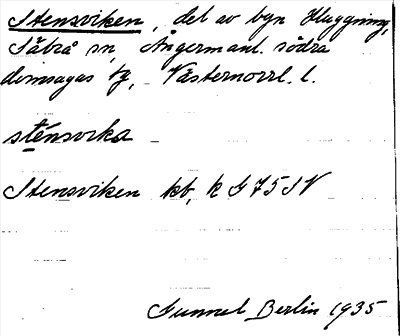 Stensviken, del av byn Huggning,
Säbrå sn, Ångermanl. södra
domsagas tg, Västernorrl. l.
sténsvika
Stensviken kb, k G 75 SV
Gunnel Berlin 1935